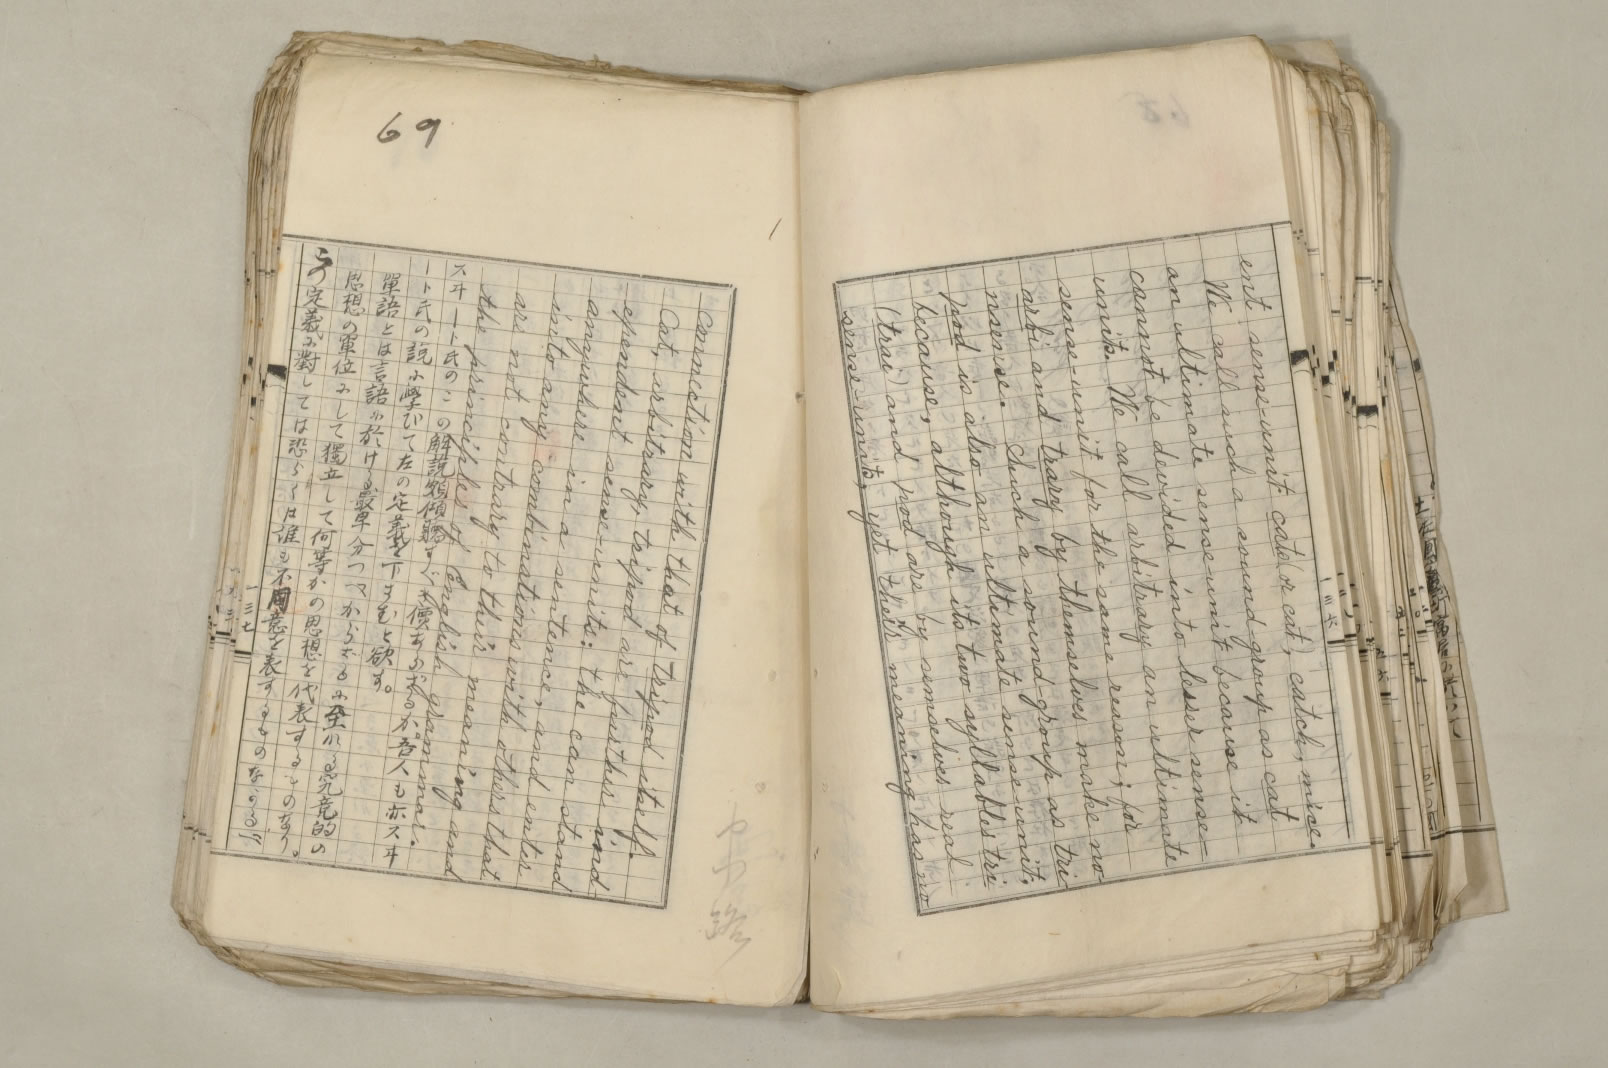 ent sense-unit cats (or cat), catch, mice.
We call such a sound-group as cat
an ultimate sense unit because it
cannot be devided into lesser sense-
units. We call arbitrary an ultimate
sense-unit for the same reason; for
arbi and trary by themselves make no-
nsense. Such a sound-group as tri-
pod is also an ultimate sense-unit,
because, although its two syllables tri
(trai) and pod are by semselves real
sense-units, yet theirs meaning has no
69
connection with that of tripod itself.
Cat, arbitrary, tripod are further ind-
ependent sense-units: the can stand
anywhere in a sentence, and enter
into any combinations with others that
are not contrary to their meaning and
the principles of English grammar.
スヰート氏のこの解説頗傾聽すべき價あり
ート氏の説に學びて左の定義を下すむと欲す。
單語とは言語に於ける最早分つべからざるに至れる究竟的の
思想の單位にして獨立して何等かの思想を代表するものなり。
この定義に對しては恐らくは誰も不同意を表するものなかるべ
一三七
一三六